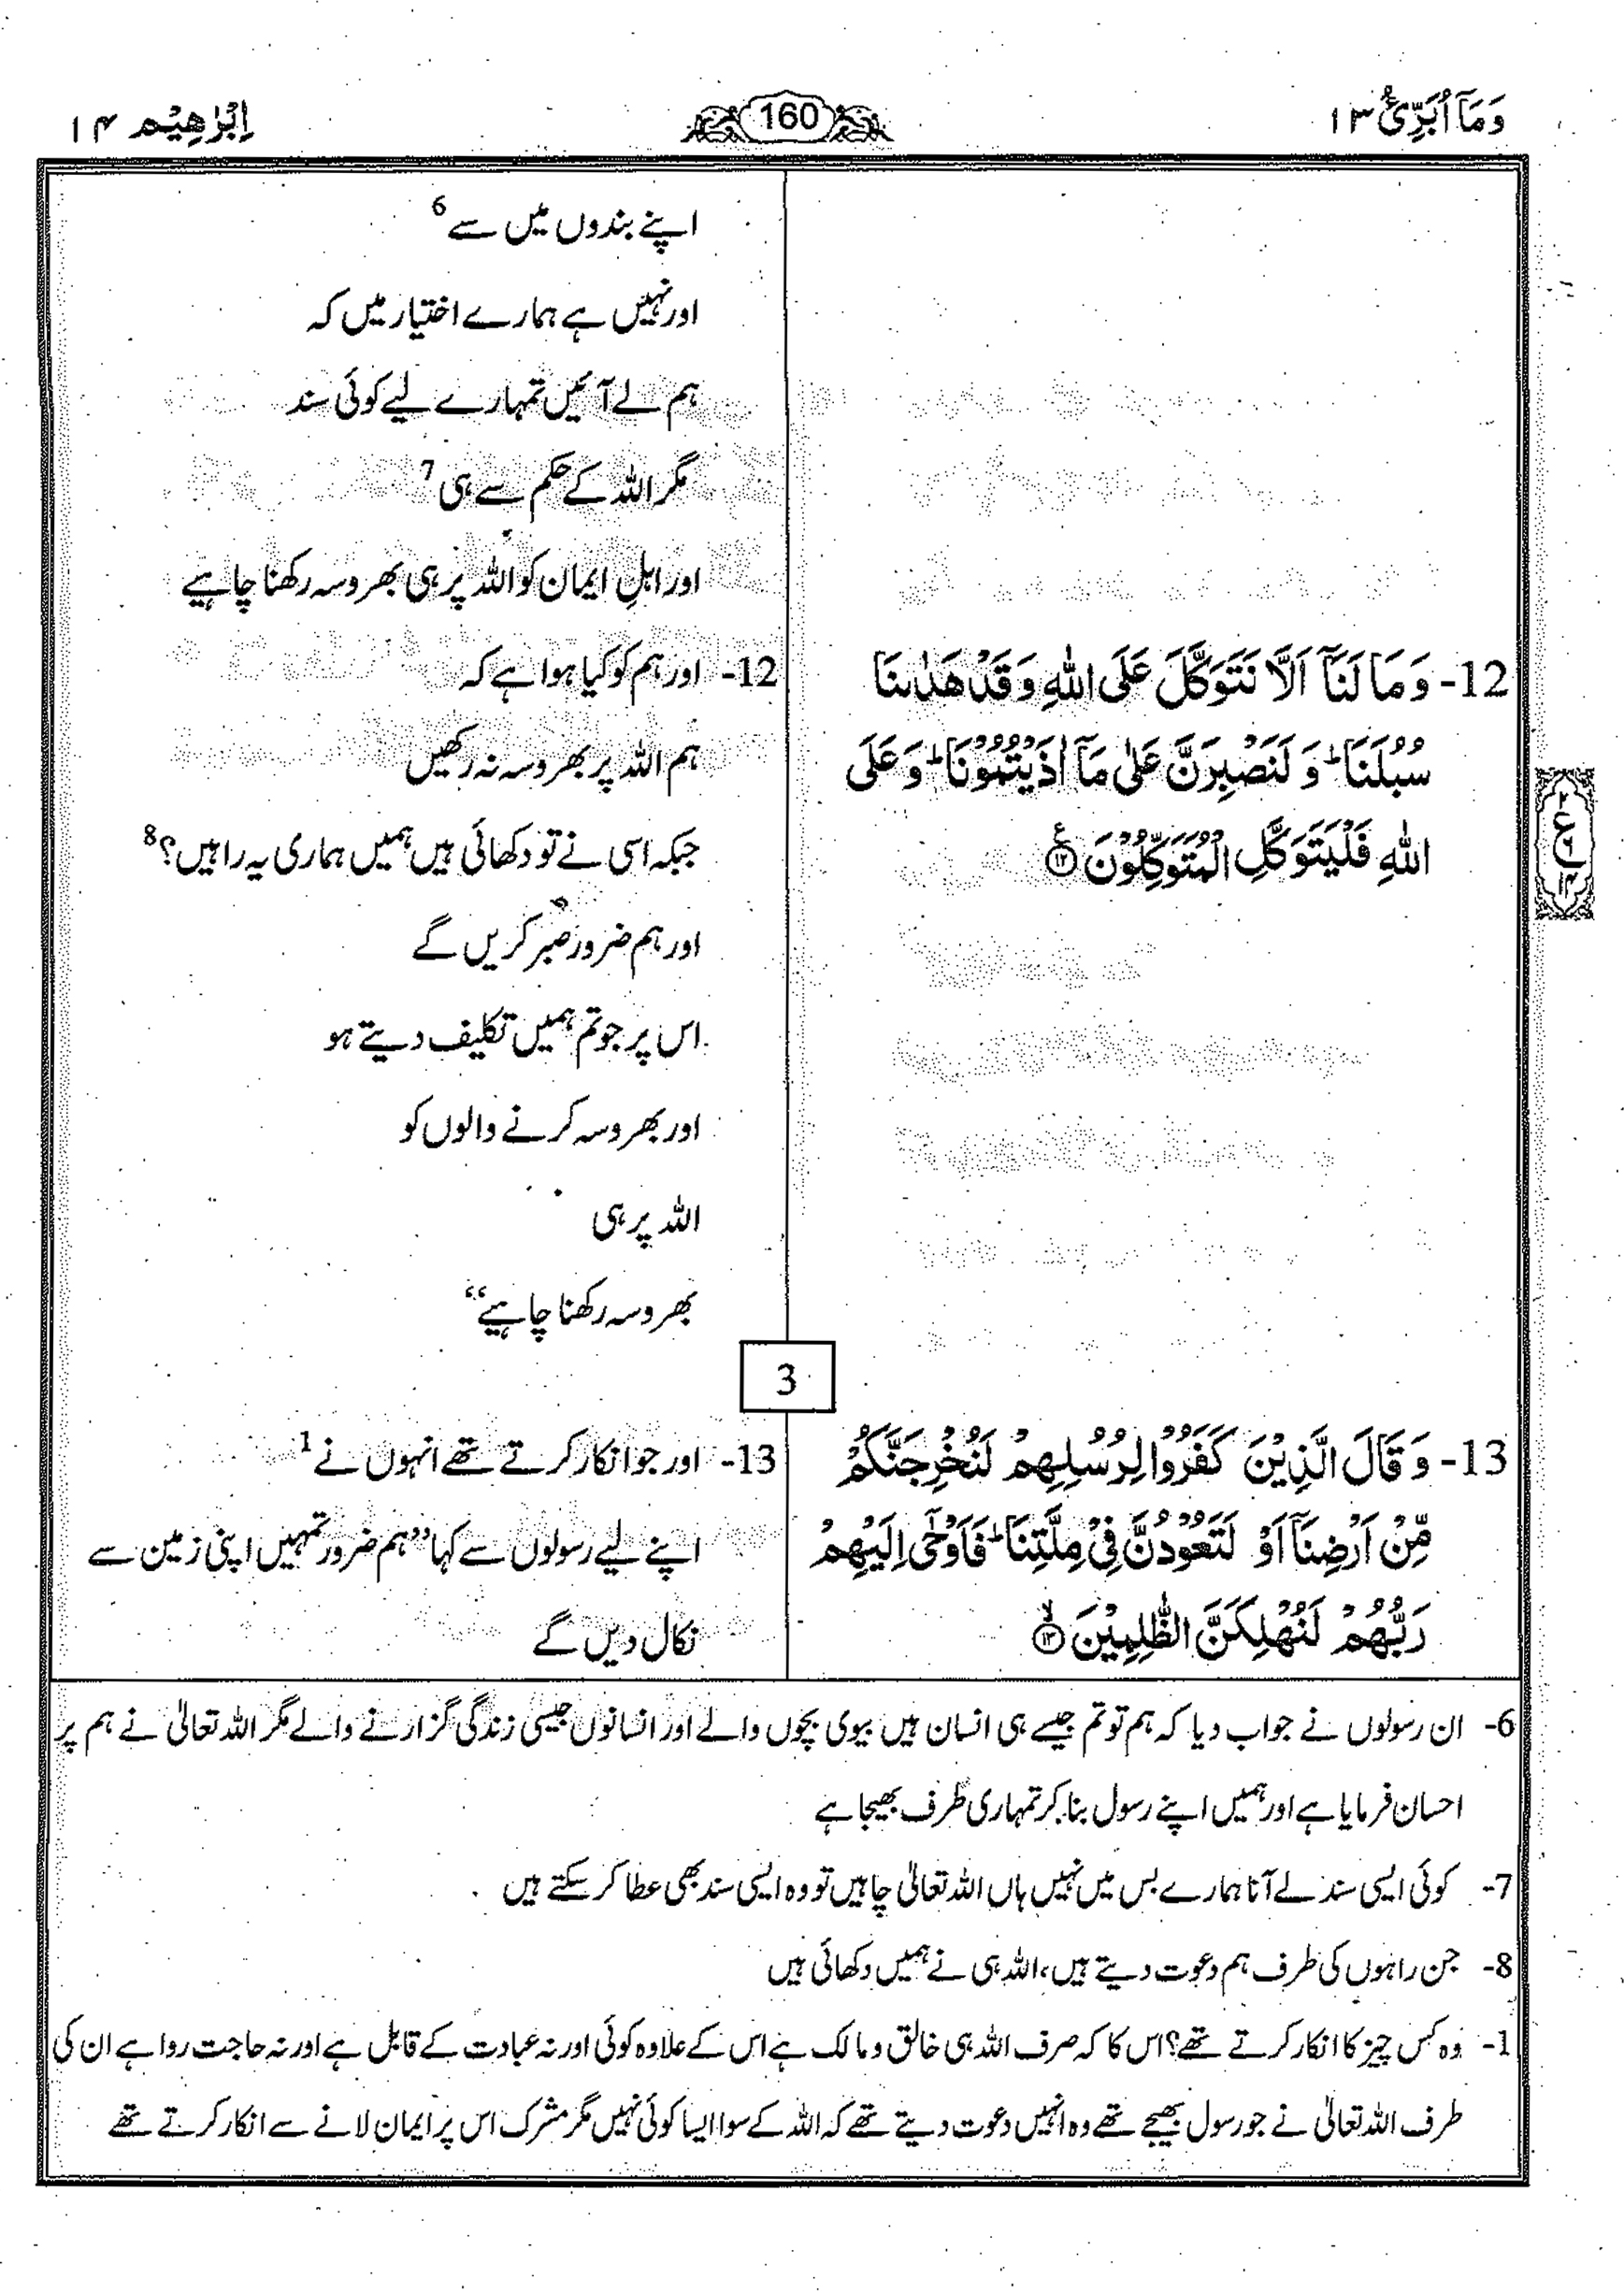 وَمَاۤ اُبَرِّئُ ١٣
160
اِبْرٰهِیْم ١۴
اپنے بندوں میں سے 6
اور نہیں ہے ہمارے اختیار میں کہ
ہم لے آئیں تمہارے لیے کوئی سند
مگر اللہ کے حکم سے ہی 7
اور اہلِ ایمان کو اللہ پر ہی بھروسہ رکھنا چاہیے
12- وَمَا لَنَاۤ اَلَّا نَتَوَكَّلَ عَلَى اللّٰهِ وَقَدْ هَدٰىنَا
سُبُلَنَا ؕ وَ لَنَصْبِرَنَّ عَلٰى مَاۤ اٰذَيْتُمُوْنَا ؕ وَ عَلَى
اللّٰهِ فَلْيَتَوَكَّلِ الْمُتَوَكِّلُوْنَ ۧ ﴿١٢﴾
12- اور ہم کو کیا ہوا ہے کہ
ہم اللہ پر بھروسہ نہ رکھیں
جبکہ اسی نے تو دکھائی ہیں ہمیں ہماری یہ راہیں؟ 8
اور ہم ضرور صبر کریں گے
اس پر جو تم ہمیں تکلیف دیتے ہو
اور بھروسہ کرنے والوں کو
اللہ پر ہی
بھروسہ رکھنا چاہیے“
3
13- وَ قَالَ الَّذِيْنَ كَفَرُوْا لِرُسُلِهِمْ لَنُخْرِجَنَّكُمْ
مِّنْ اَرْضِنَاۤ اَوْ لَتَعُوْدُنَّ فِيْ مِلَّتِنَا ؕ فَاَوْحٰۤى اِلَيْهِمْ
رَبُّهُمْ لَنُهْلِكَنَّ الظّٰلِمِيْنَ ۙ ﴿١٣﴾
13- اور جو انکار کرتے تھے انہوں نے 1
اپنے لیے رسولوں سے کہا ”ہم ضرور تمہیں اپنی زمین سے
نکال دیں گے
6- ان رسولوں نے جواب دیا کہ ہم تو تم جیسے ہی انسان ہیں بیوی بچوں والے اور انسانوں جیسی زندگی گزارنے والے مگر اللہ تعالیٰ نے ہم پر
احسان فرمایا ہے اور ہمیں اپنے رسول بنا کر تمہاری طرف بھیجا ہے
7- کوئی ایسی سند لے آنا ہمارے بس میں نہیں ہاں اللہ تعالیٰ چاہیں تو وہ ایسی سند بھی عطا کر سکتے ہیں
8- جن راہوں کی طرف ہم دعوت دیتے ہیں، اللہ ہی نے ہمیں دکھائی ہیں
1- وہ کس چیز کا انکار کرتے تھے؟ اس کا کہ صرف اللہ ہی خالق و مالک ہے اس کے علاوہ کوئی اور نہ عبادت کے قابل ہے اور نہ حاجت روا ہے ان کی
طرف اللہ تعالیٰ نے جو رسول بھیجے تھے وہ انہیں دعوت دیتے تھے کہ اللہ کے سوا ایسا کوئی نہیں مگر مشرک اس پر ایمان لانے سے انکار کرتے تھے